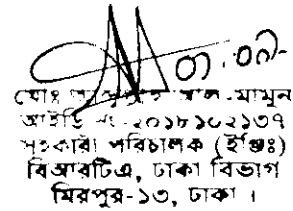 ০৩.০৯.
মোঃ আল-মামুন
আইডি নং-২০১৮১০২১৩৭
সহকারী পরিচালক (ইঞ্জিঃ)
বিআরটিএ, ঢাকা বিভাগ
মিরপুর-১৩, ঢাকা ।